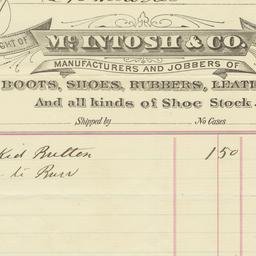 GHT OF
McINTOSH & CO.
MANUFACTURERS AND JOBBERS OF
BOOTS, SHOES, RUBBERS, LEAT
And all kinds of Shoe Stock.
Shipped by No Cases
Kid Button 1 50